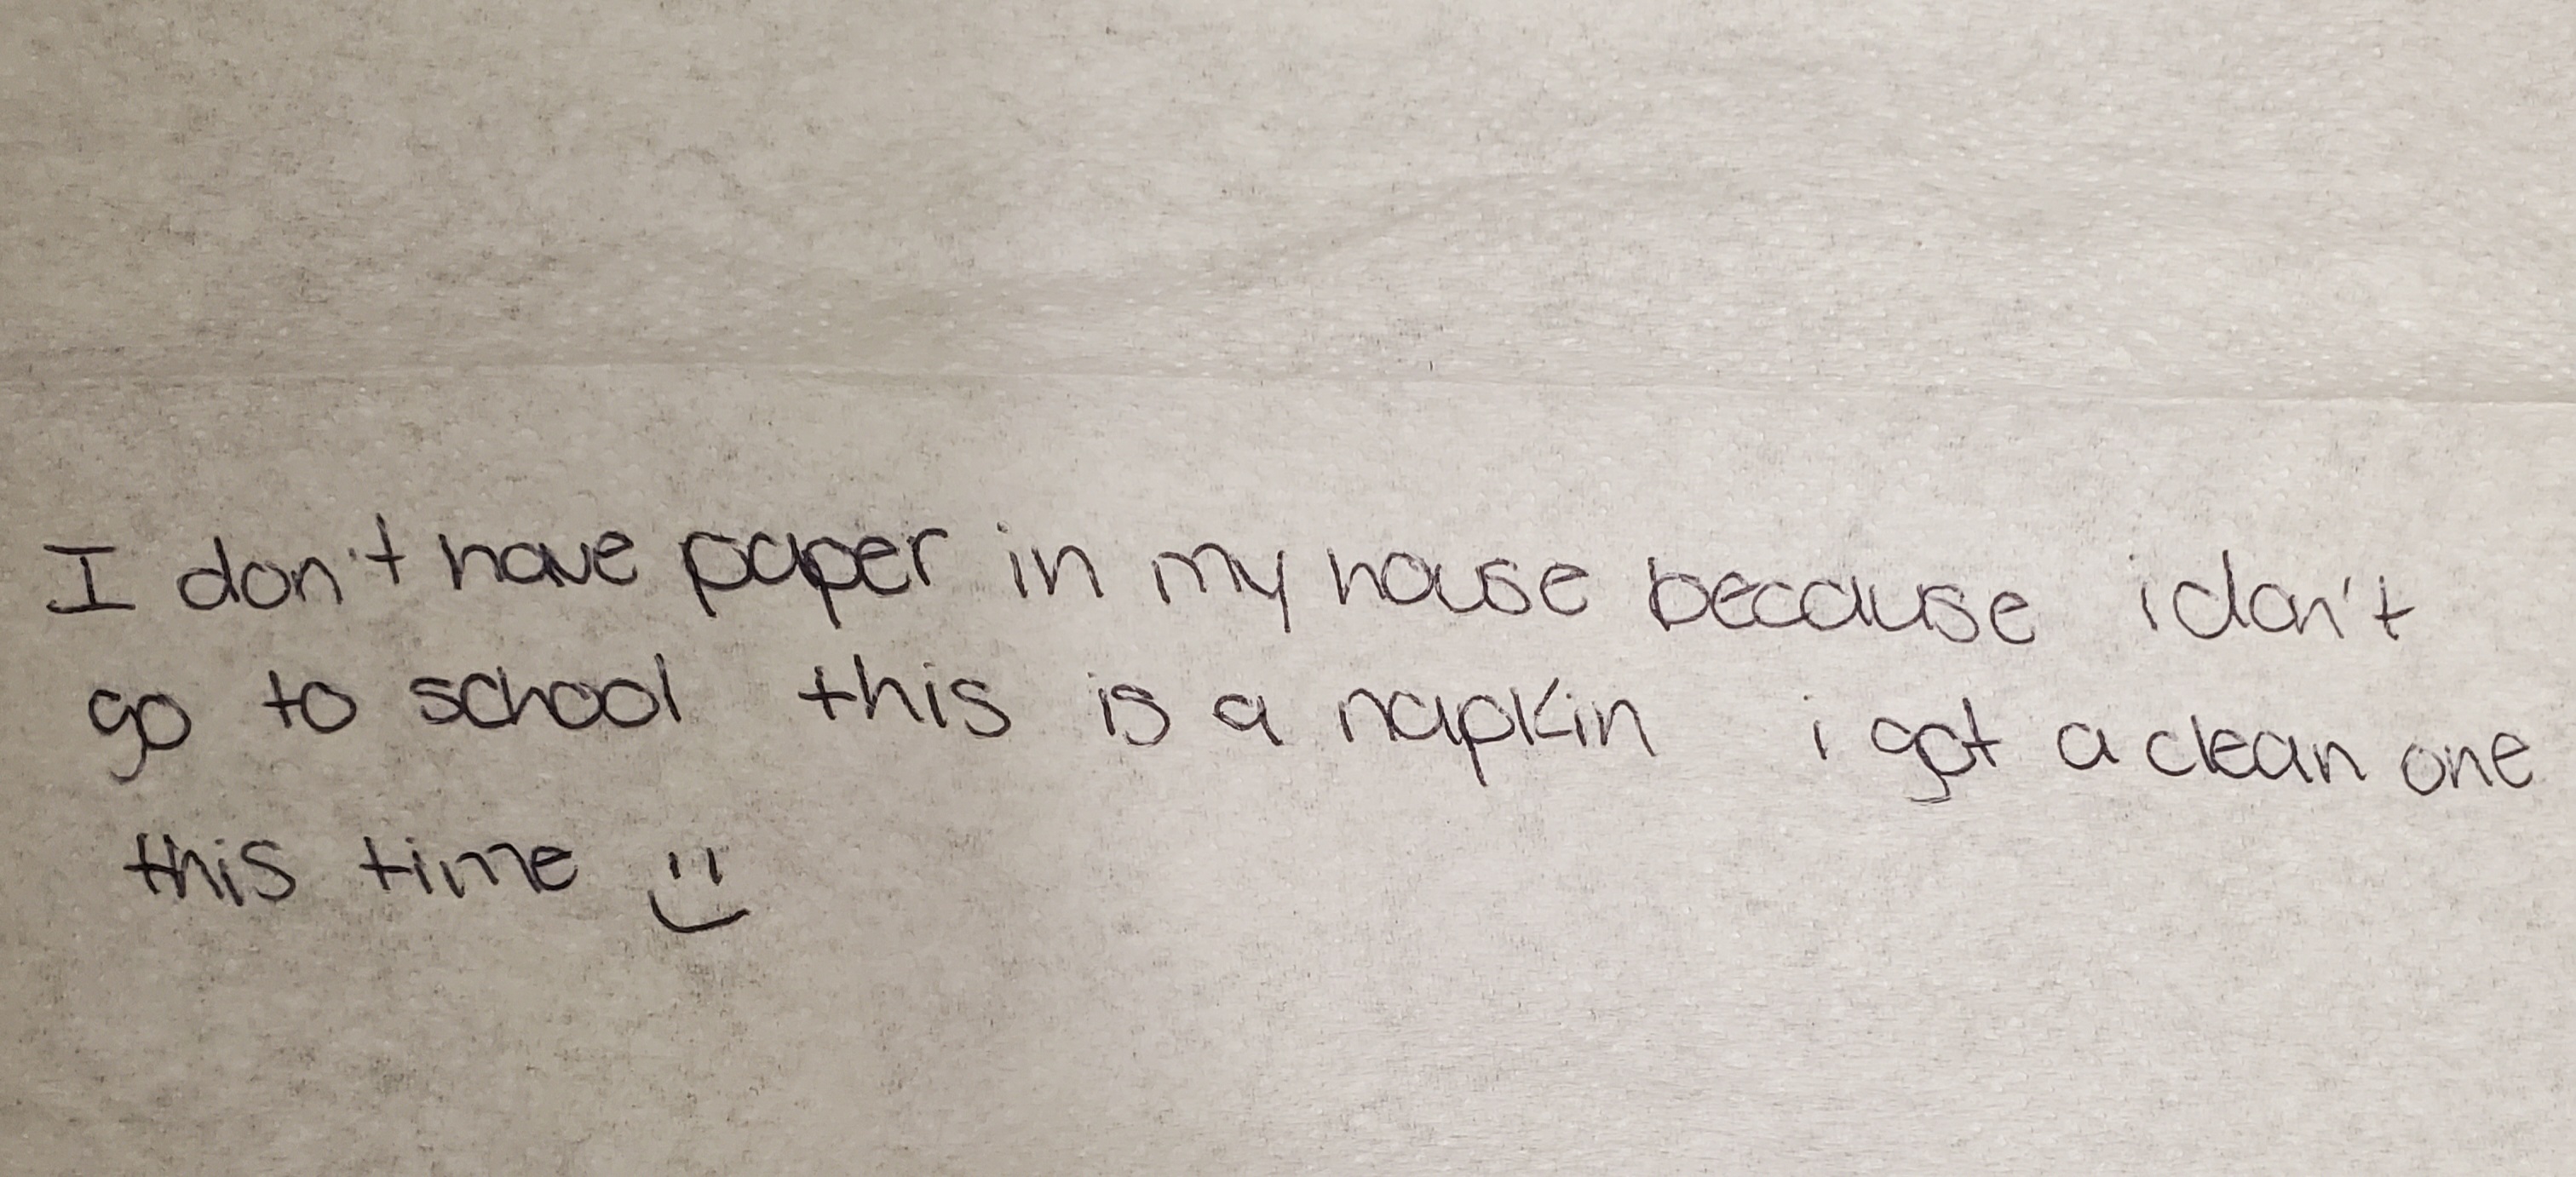 I don't have paper in my house because i don't
go to school this is a napkin i got a clean one
this time :)